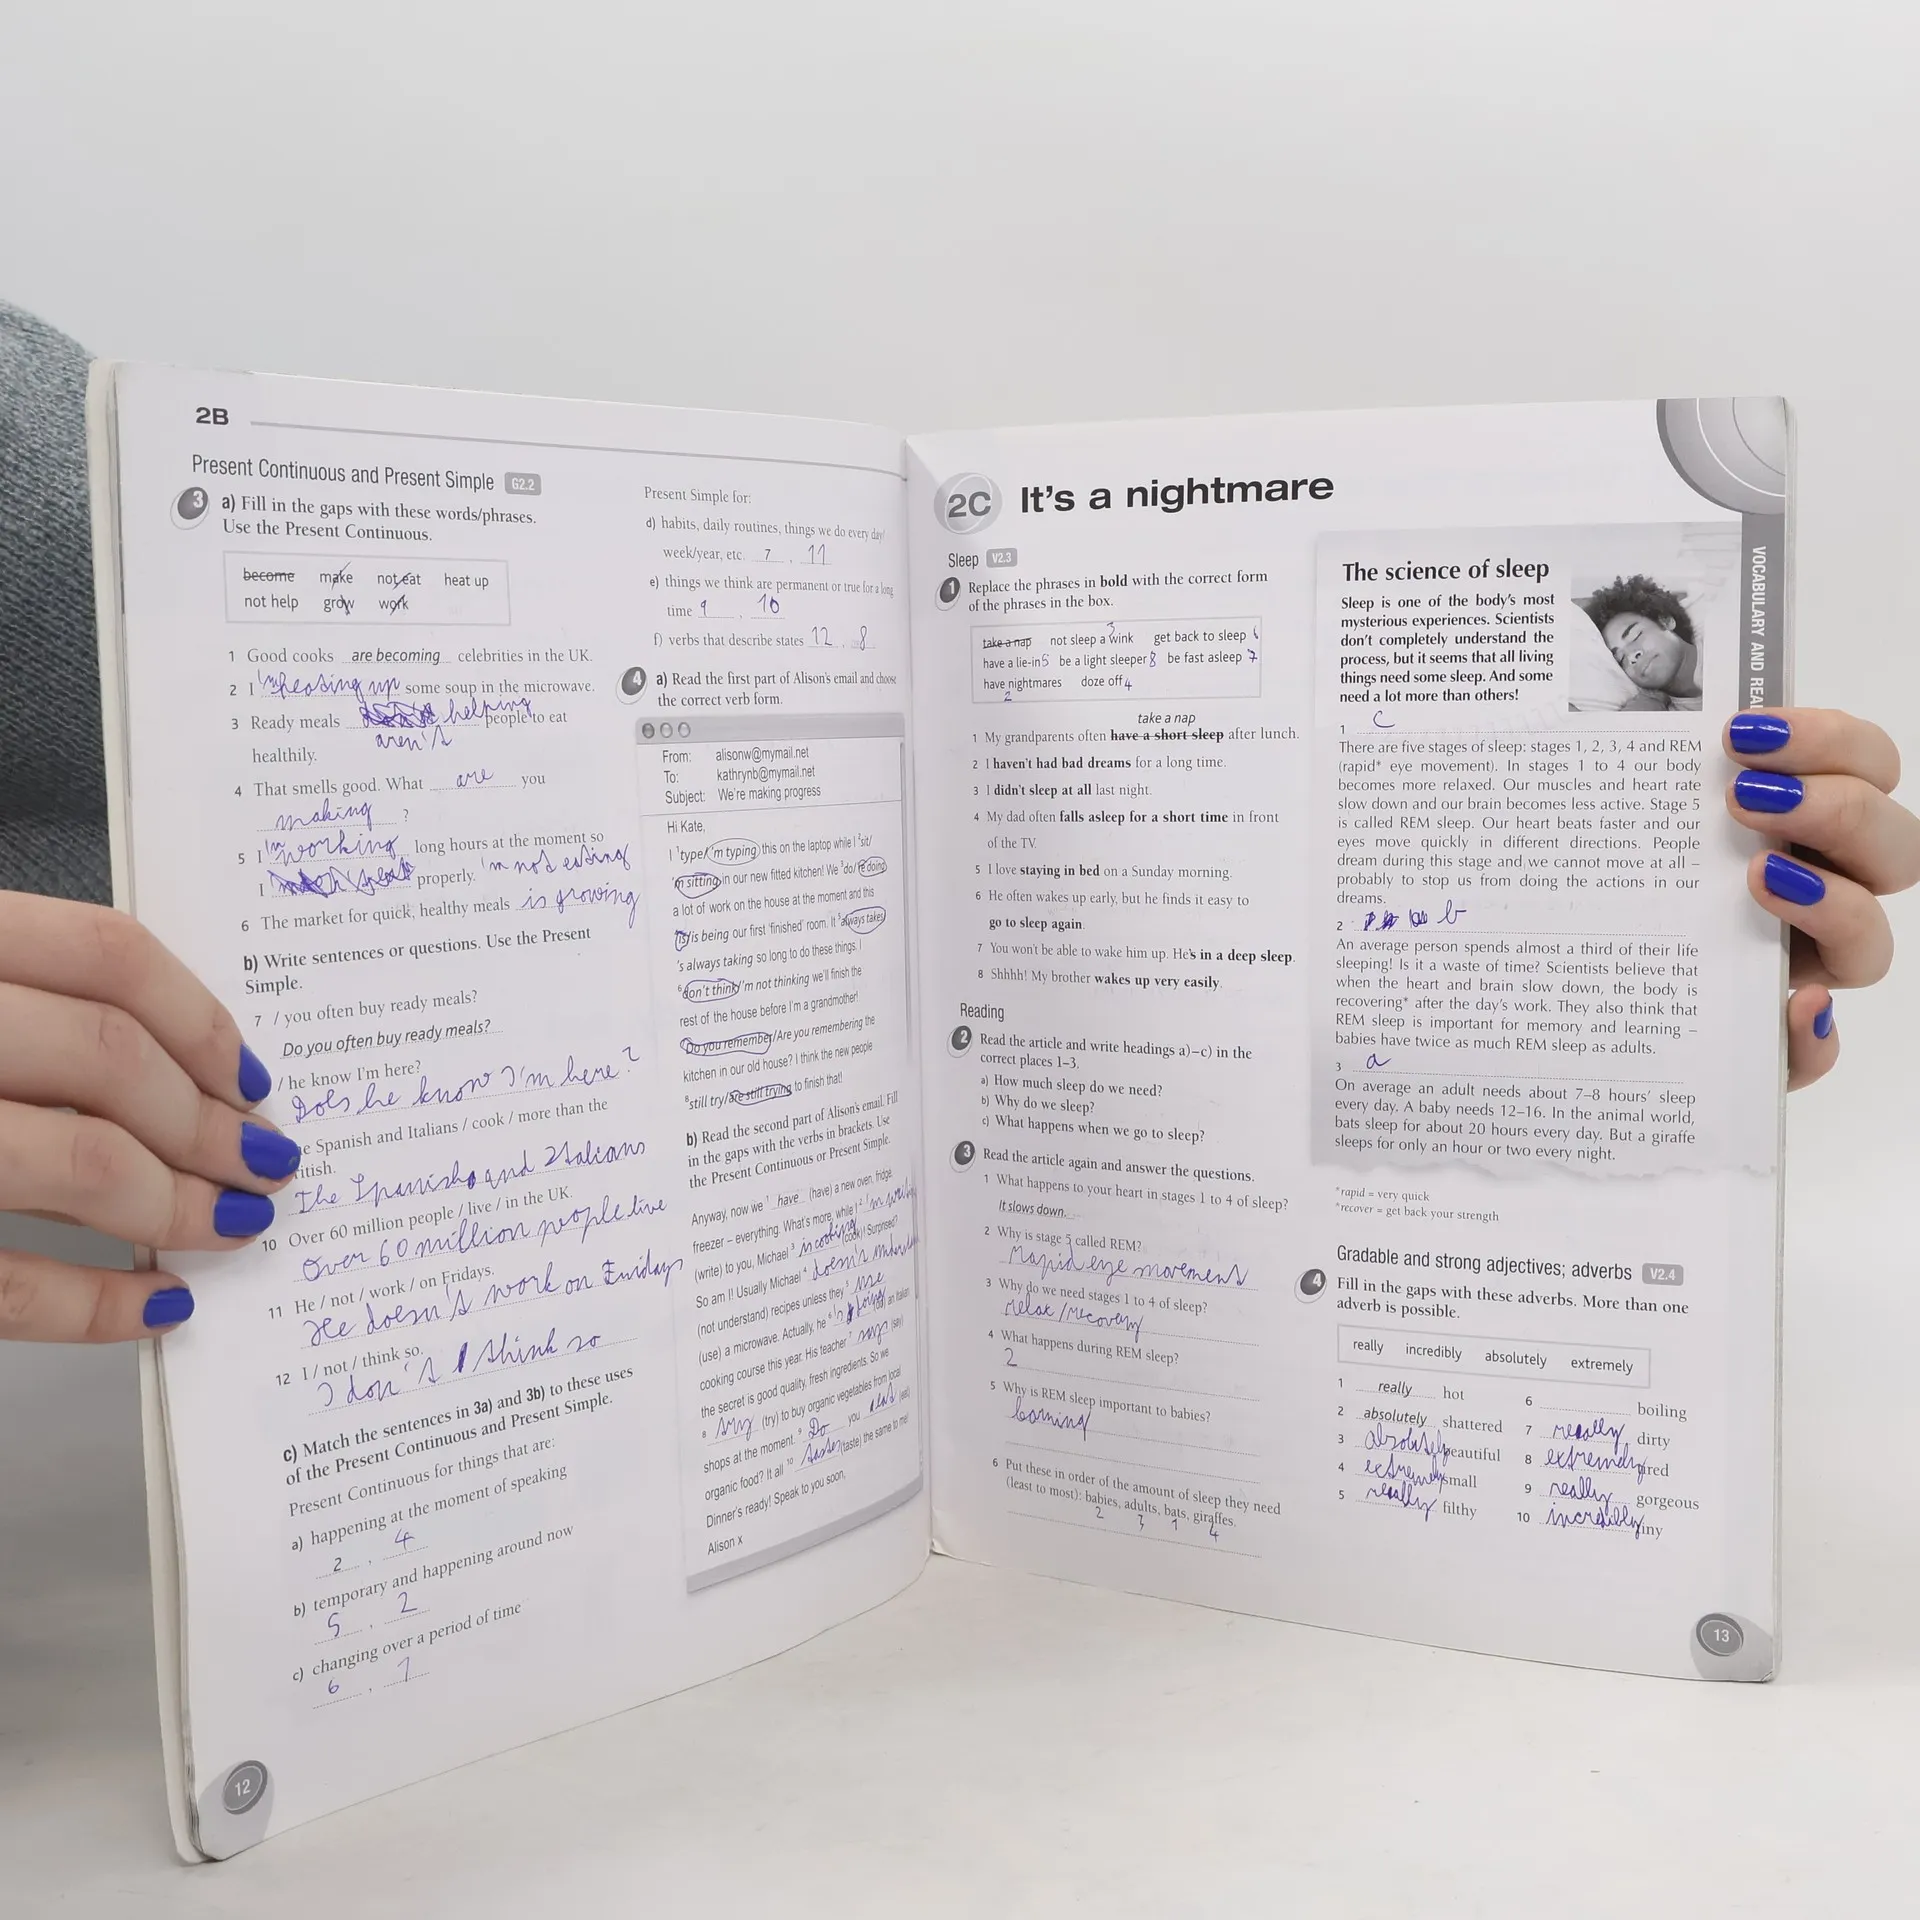 2B
Present Continuous and Present Simple G2.2
3 a) Fill in the gaps with these words/phrases.
Use the Present Continuous.
become make not eat heat up
not help grow work
1 Good cooks are becoming celebrities in the UK.
2 I 'm heating up some soup in the microwave.
3 Ready meals helping people to eat
aren't
healthily.
4 That smells good. What are you
making ?
5 I 'm working long hours at the moment so
I properly. 'm not eating
6 The market for quick, healthy meals is growing
b) Write sentences or questions. Use the Present
Simple.
7 / you often buy ready meals?
Do you often buy ready meals?
/ he know I'm here?
Does he know I'm here?
Spanish and Italians / cook / more than the
The Spanish and Italians
10 Over 60 million people / live / in the UK.
Over 60 million people live
11 He / not / work / on Fridays.
He doesn't work on Fridays
12 I / not / think so.
I don't think so
c) Match the sentences in 3a) and 3b) to these uses
of the Present Continuous and Present Simple.
Present Continuous for things that are:
a) happening at the moment of speaking
2 , 4
b) temporary and happening around now
5 , 2
c) changing over a period of time
6 , 1
12
Present Simple for:
d) habits, daily routines, things we do every day/
week/year, etc. 7 , 11
e) things we think are permanent or true for a long
time 9 , 10
f) verbs that describe states 12 , 8
4 a) Read the first part of Alison's email and choose
the correct verb form.
From: alisonw@mymail.net
To: kathrynb@mymail.net
Subject: We're making progress
Hi Kate,
I 1type/'m typing this on the laptop while I 2sit/
'm sitting in our new fitted kitchen! We 3do/'re doing
a lot of work on the house at the moment and this
4is/is being our first 'finished' room. It 5always takes/
's always taking so long to do these things. I
6don't think/'m not thinking we'll finish the
rest of the house before I'm a grandmother!
7Do you remember/Are you remembering the
kitchen in our old house? I think the new people
8still try/are still trying to finish that!
b) Read the second part of Alison's email. Fill
in the gaps with the verbs in brackets. Use
the Present Continuous or Present Simple.
Anyway, now we 1 have (have) a new oven, fridge,
freezer – everything. What's more, while I 2 'm writing
(write) to you, Michael 3 is cooking (cook)! Surprised?
So am I! Usually Michael 4 doesn't understand
(not understand) recipes unless they 5 use
(use) a microwave. Actually, he 6 's doing (do) an Italian
cooking course this year. His teacher 7 says (say)
the secret is good quality, fresh ingredients. So we
8 (try) to buy organic vegetables from local
shops at the moment. 9 Do you eat (eat)
organic food? It all 10 tastes (taste) the same to me!
Dinner's ready! Speak to you soon,
Alison x
2C It's a nightmare
Sleep V2.3
1 Replace the phrases in bold with the correct form
of the phrases in the box.
take a nap not sleep a wink 3 get back to sleep 6
have a lie-in 5 be a light sleeper 8 be fast asleep 7
have nightmares 2 doze off 4
take a nap
1 My grandparents often have a short sleep after lunch.
2 I haven't had bad dreams for a long time.
3 I didn't sleep at all last night.
4 My dad often falls asleep for a short time in front
of the TV.
5 I love staying in bed on a Sunday morning.
6 He often wakes up early, but he finds it easy to
go to sleep again.
7 You won't be able to wake him up. He's in a deep sleep.
8 Shhhh! My brother wakes up very easily.
Reading
2 Read the article and write headings a)–c) in the
correct places 1–3.
a) How much sleep do we need?
b) Why do we sleep?
c) What happens when we go to sleep?
3 Read the article again and answer the questions.
1 What happens to your heart in stages 1 to 4 of sleep?
It slows down.
2 Why is stage 5 called REM?
rapid eye movement
3 Why do we need stages 1 to 4 of sleep?
relax / recovery
4 What happens during REM sleep?
2
5 Why is REM sleep important to babies?
6 Put these in order of the amount of sleep they need
(least to most): babies, adults, bats, giraffes.
2 3 1 4
The science of sleep
Sleep is one of the body's most
mysterious experiences. Scientists
don't completely understand the
process, but it seems that all living
things need some sleep. And some
need a lot more than others!
1 C
There are five stages of sleep: stages 1, 2, 3, 4 and REM
(rapid* eye movement). In stages 1 to 4 our body
becomes more relaxed. Our muscles and heart rate
slow down and our brain becomes less active. Stage 5
is called REM sleep. Our heart beats faster and our
eyes move quickly in different directions. People
dream during this stage and we cannot move at all –
probably to stop us from doing the actions in our
dreams.
2 b
An average person spends almost a third of their life
sleeping! Is it a waste of time? Scientists believe that
when the heart and brain slow down, the body is
recovering* after the day's work. They also think that
REM sleep is important for memory and learning –
babies have twice as much REM sleep as adults.
3 a
On average an adult needs about 7–8 hours' sleep
every day. A baby needs 12–16. In the animal world,
bats sleep for about 20 hours every day. But a giraffe
sleeps for only an hour or two every night.
*rapid = very quick
*recover = get back your strength
Gradable and strong adjectives; adverbs V2.4
4 Fill in the gaps with these adverbs. More than one
adverb is possible.
really incredibly absolutely extremely
1 really hot
2 absolutely shattered
3 absolutely beautiful
4 extremely small
5 really filthy
6 boiling
7 really dirty
8 extremely tired
9 really gorgeous
10 incredibly tiny
VOCABULARY AND
13